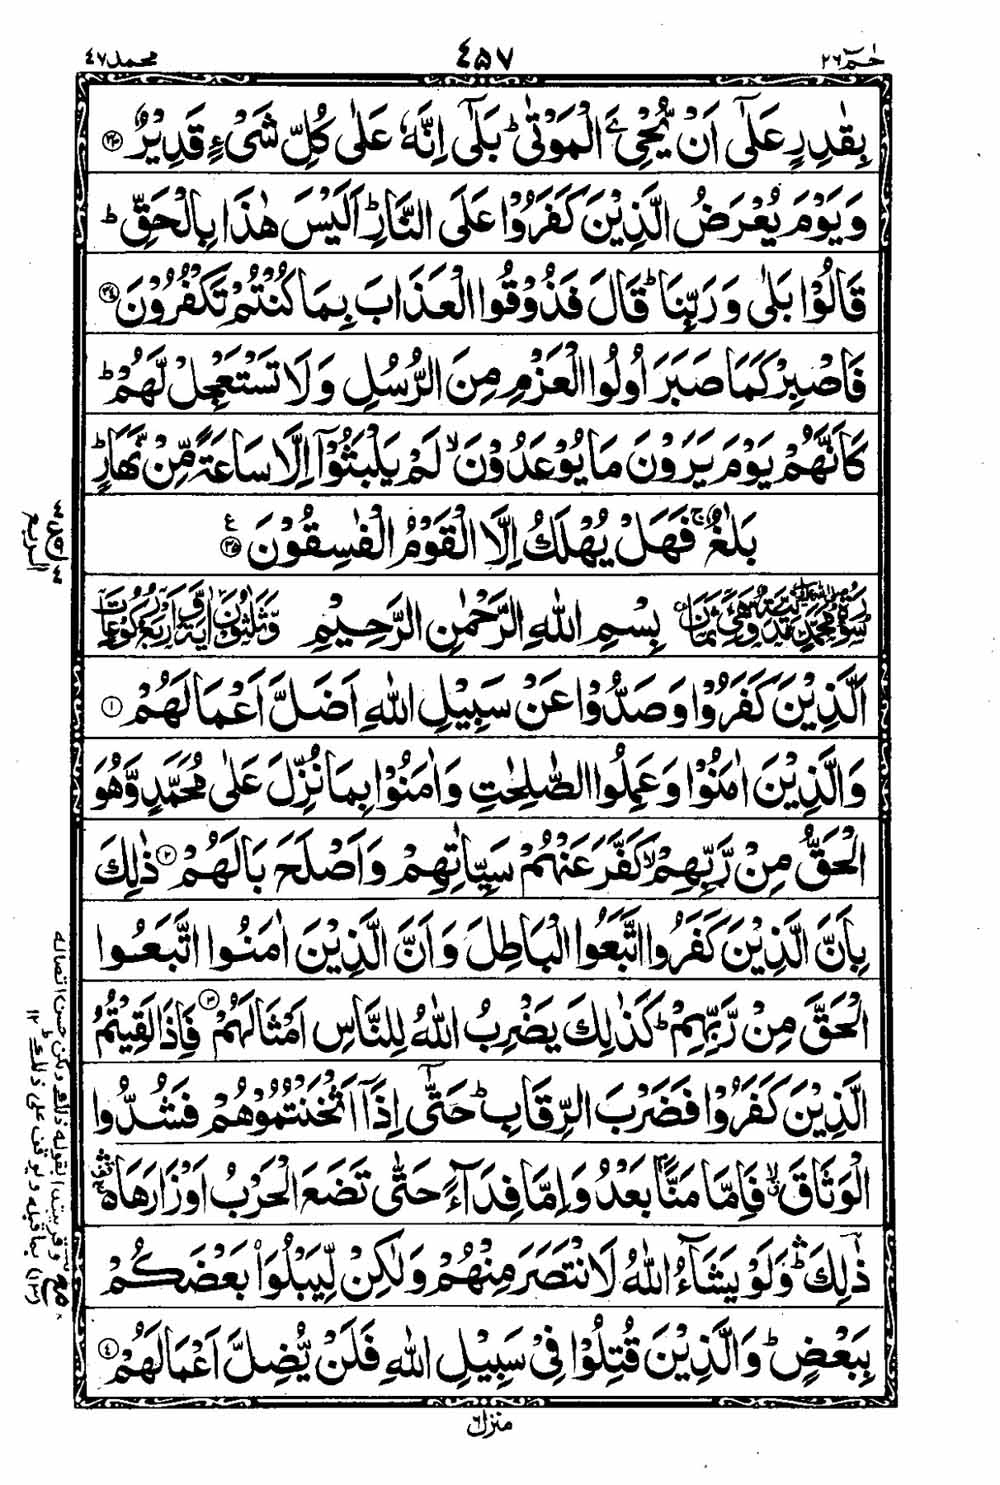 حٰمٓ ٢٦
٤٥٧
محمد ٤٧
بِقٰدِرٍ عَلٰٓى اَنْ يُّحْيِۦَ الْمَوْتٰى ؕ بَلٰٓى اِنَّهٗ عَلٰى كُلِّ شَىْءٍ قَدِيْرٌ ۝٣٣
وَيَوْمَ يُعْرَضُ الَّذِيْنَ كَفَرُوْا عَلَى النَّارِ ؕ اَلَيْسَ هٰذَا بِالْحَقِّ ؕ
قَالُوْا بَلٰى وَرَبِّنَا ؕ قَالَ فَذُوْقُوا الْعَذَابَ بِمَا كُنْتُمْ تَكْفُرُوْنَ ۝٣٤
فَاصْبِرْ كَمَا صَبَرَ اُولُوا الْعَزْمِ مِنَ الرُّسُلِ وَلَا تَسْتَعْجِلْ لَّهُمْ ؕ
كَاَنَّهُمْ يَوْمَ يَرَوْنَ مَا يُوْعَدُوْنَ ۙ لَمْ يَلْبَثُوْٓا اِلَّا سَاعَةً مِّنْ نَّهَارٍ ؕ
بَلٰغٌ ۚ فَهَلْ يُهْلَكُ اِلَّا الْقَوْمُ الْفٰسِقُوْنَ ۝٣٥ ع
بِسْمِ اللّٰهِ الرَّحْمٰنِ الرَّحِيْمِ
اَلَّذِيْنَ كَفَرُوْا وَصَدُّوْا عَنْ سَبِيْلِ اللّٰهِ اَضَلَّ اَعْمَالَهُمْ ۝١
وَالَّذِيْنَ اٰمَنُوْا وَعَمِلُوا الصّٰلِحٰتِ وَاٰمَنُوْا بِمَا نُزِّلَ عَلٰى مُحَمَّدٍ وَّهُوَ
الْحَقُّ مِنْ رَّبِّهِمْ ۙ كَفَّرَ عَنْهُمْ سَيِّاٰتِهِمْ وَاَصْلَحَ بَالَهُمْ ۝٢ ذٰلِكَ
بِاَنَّ الَّذِيْنَ كَفَرُوا اتَّبَعُوا الْبَاطِلَ وَاَنَّ الَّذِيْنَ اٰمَنُوا اتَّبَعُوا
الْحَقَّ مِنْ رَّبِّهِمْ ؕ كَذٰلِكَ يَضْرِبُ اللّٰهُ لِلنَّاسِ اَمْثَالَهُمْ ۝٣ فَاِذَا لَقِيْتُمُ
الَّذِيْنَ كَفَرُوْا فَضَرْبَ الرِّقَابِ ؕ حَتّٰٓى اِذَآ اَثْخَنْتُمُوْهُمْ فَشُدُّوا
الْوَثَاقَ ۙ فَاِمَّا مَنًّۢا بَعْدُ وَاِمَّا فِدَآءً حَتّٰى تَضَعَ الْحَرْبُ اَوْزَارَهَا
ذٰلِكَ ۛؕ وَلَوْ يَشَآءُ اللّٰهُ لَانْتَصَرَ مِنْهُمْ وَلٰكِنْ لِّيَبْلُوَا۟ بَعْضَكُمْ
بِبَعْضٍ ؕ وَالَّذِيْنَ قُتِلُوْا فِىْ سَبِيْلِ اللّٰهِ فَلَنْ يُّضِلَّ اَعْمَالَهُمْ ۝٤
منزل ٦